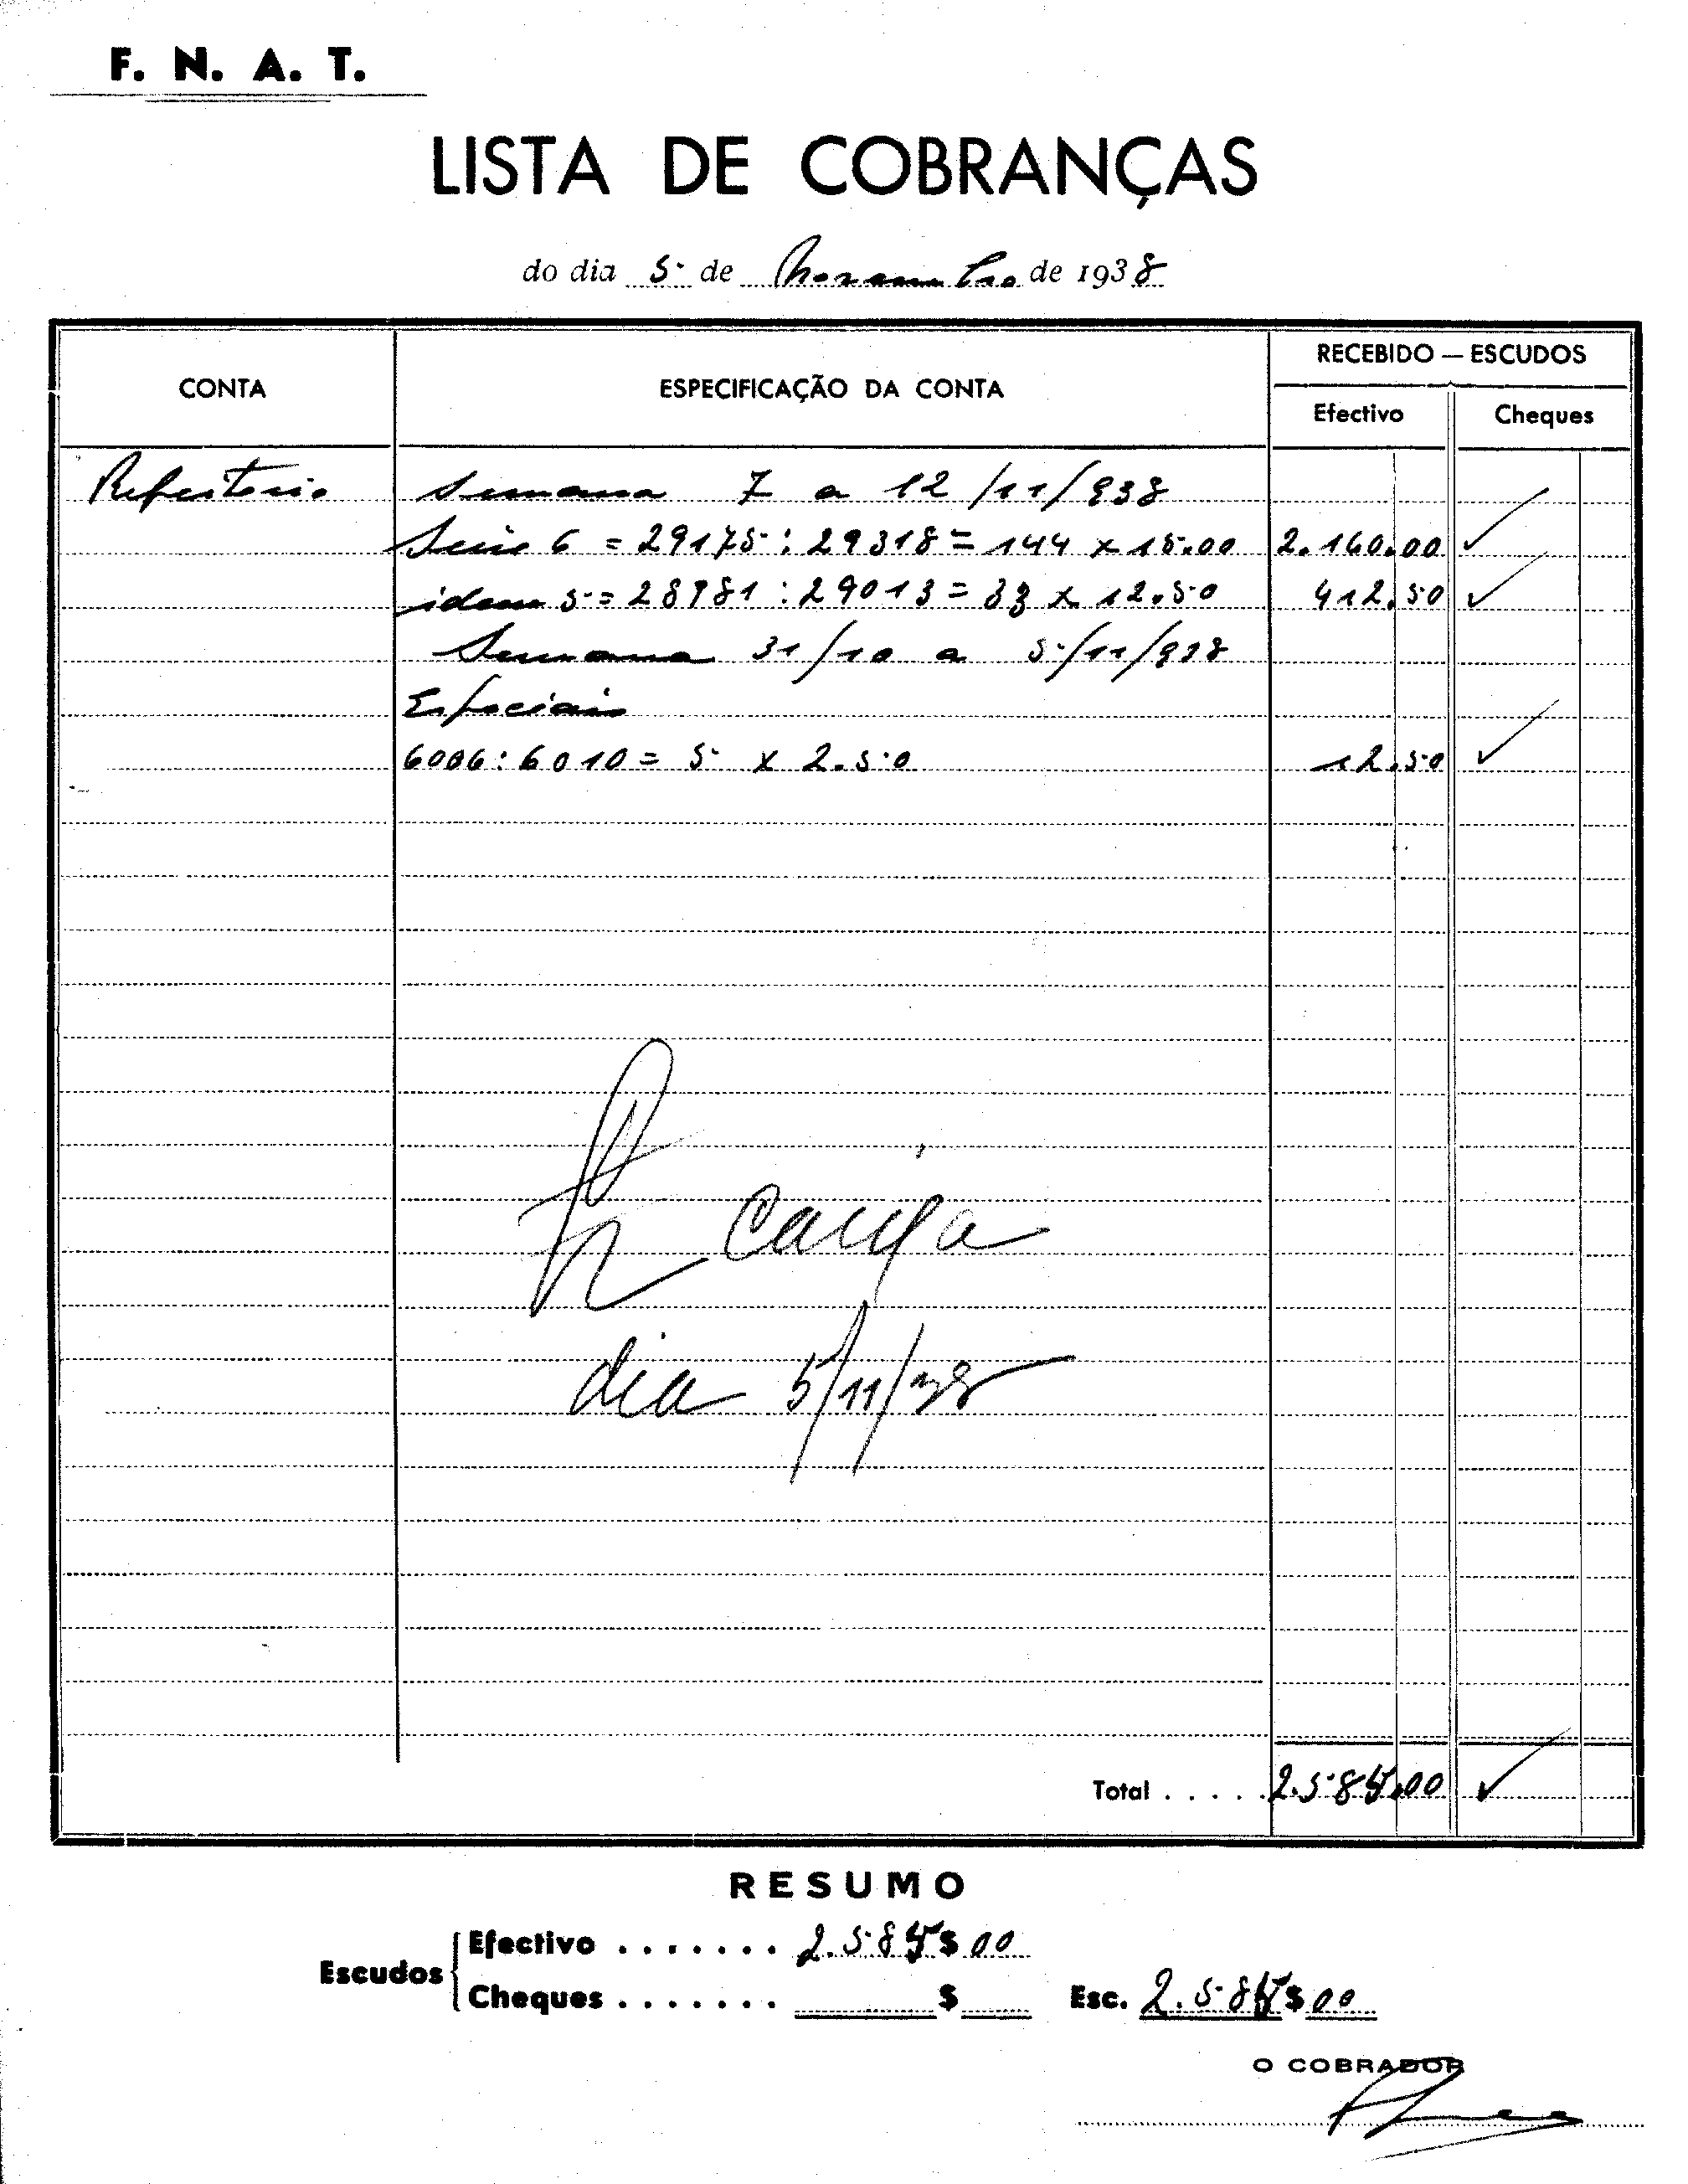 F. N. A. T.
LISTA DE COBRANÇAS
do dia 5 de Novembro de 1938
CONTA
ESPECIFICAÇÃO DA CONTA
RECEBIDO — ESCUDOS
Efectivo
Cheques
Refeitorio Semana 7 a 12/11/938
Serie 6 = 29175 : 29318 = 144 x 15.00 2.160.00
idem 5 = 28981 : 29013 = 33 x 12.50 412.50
Semana 31/10 a 5/11/938
Especiais
6006 : 6010 = 5 x 2.50 12.50
Caixa
dia 5/11/38
Total . . . . . 2.585.00
RESUMO
Escudos
Efectivo ....... 2.585$00
Cheques ....... $
Esc. 2.585$00
O COBRADOR